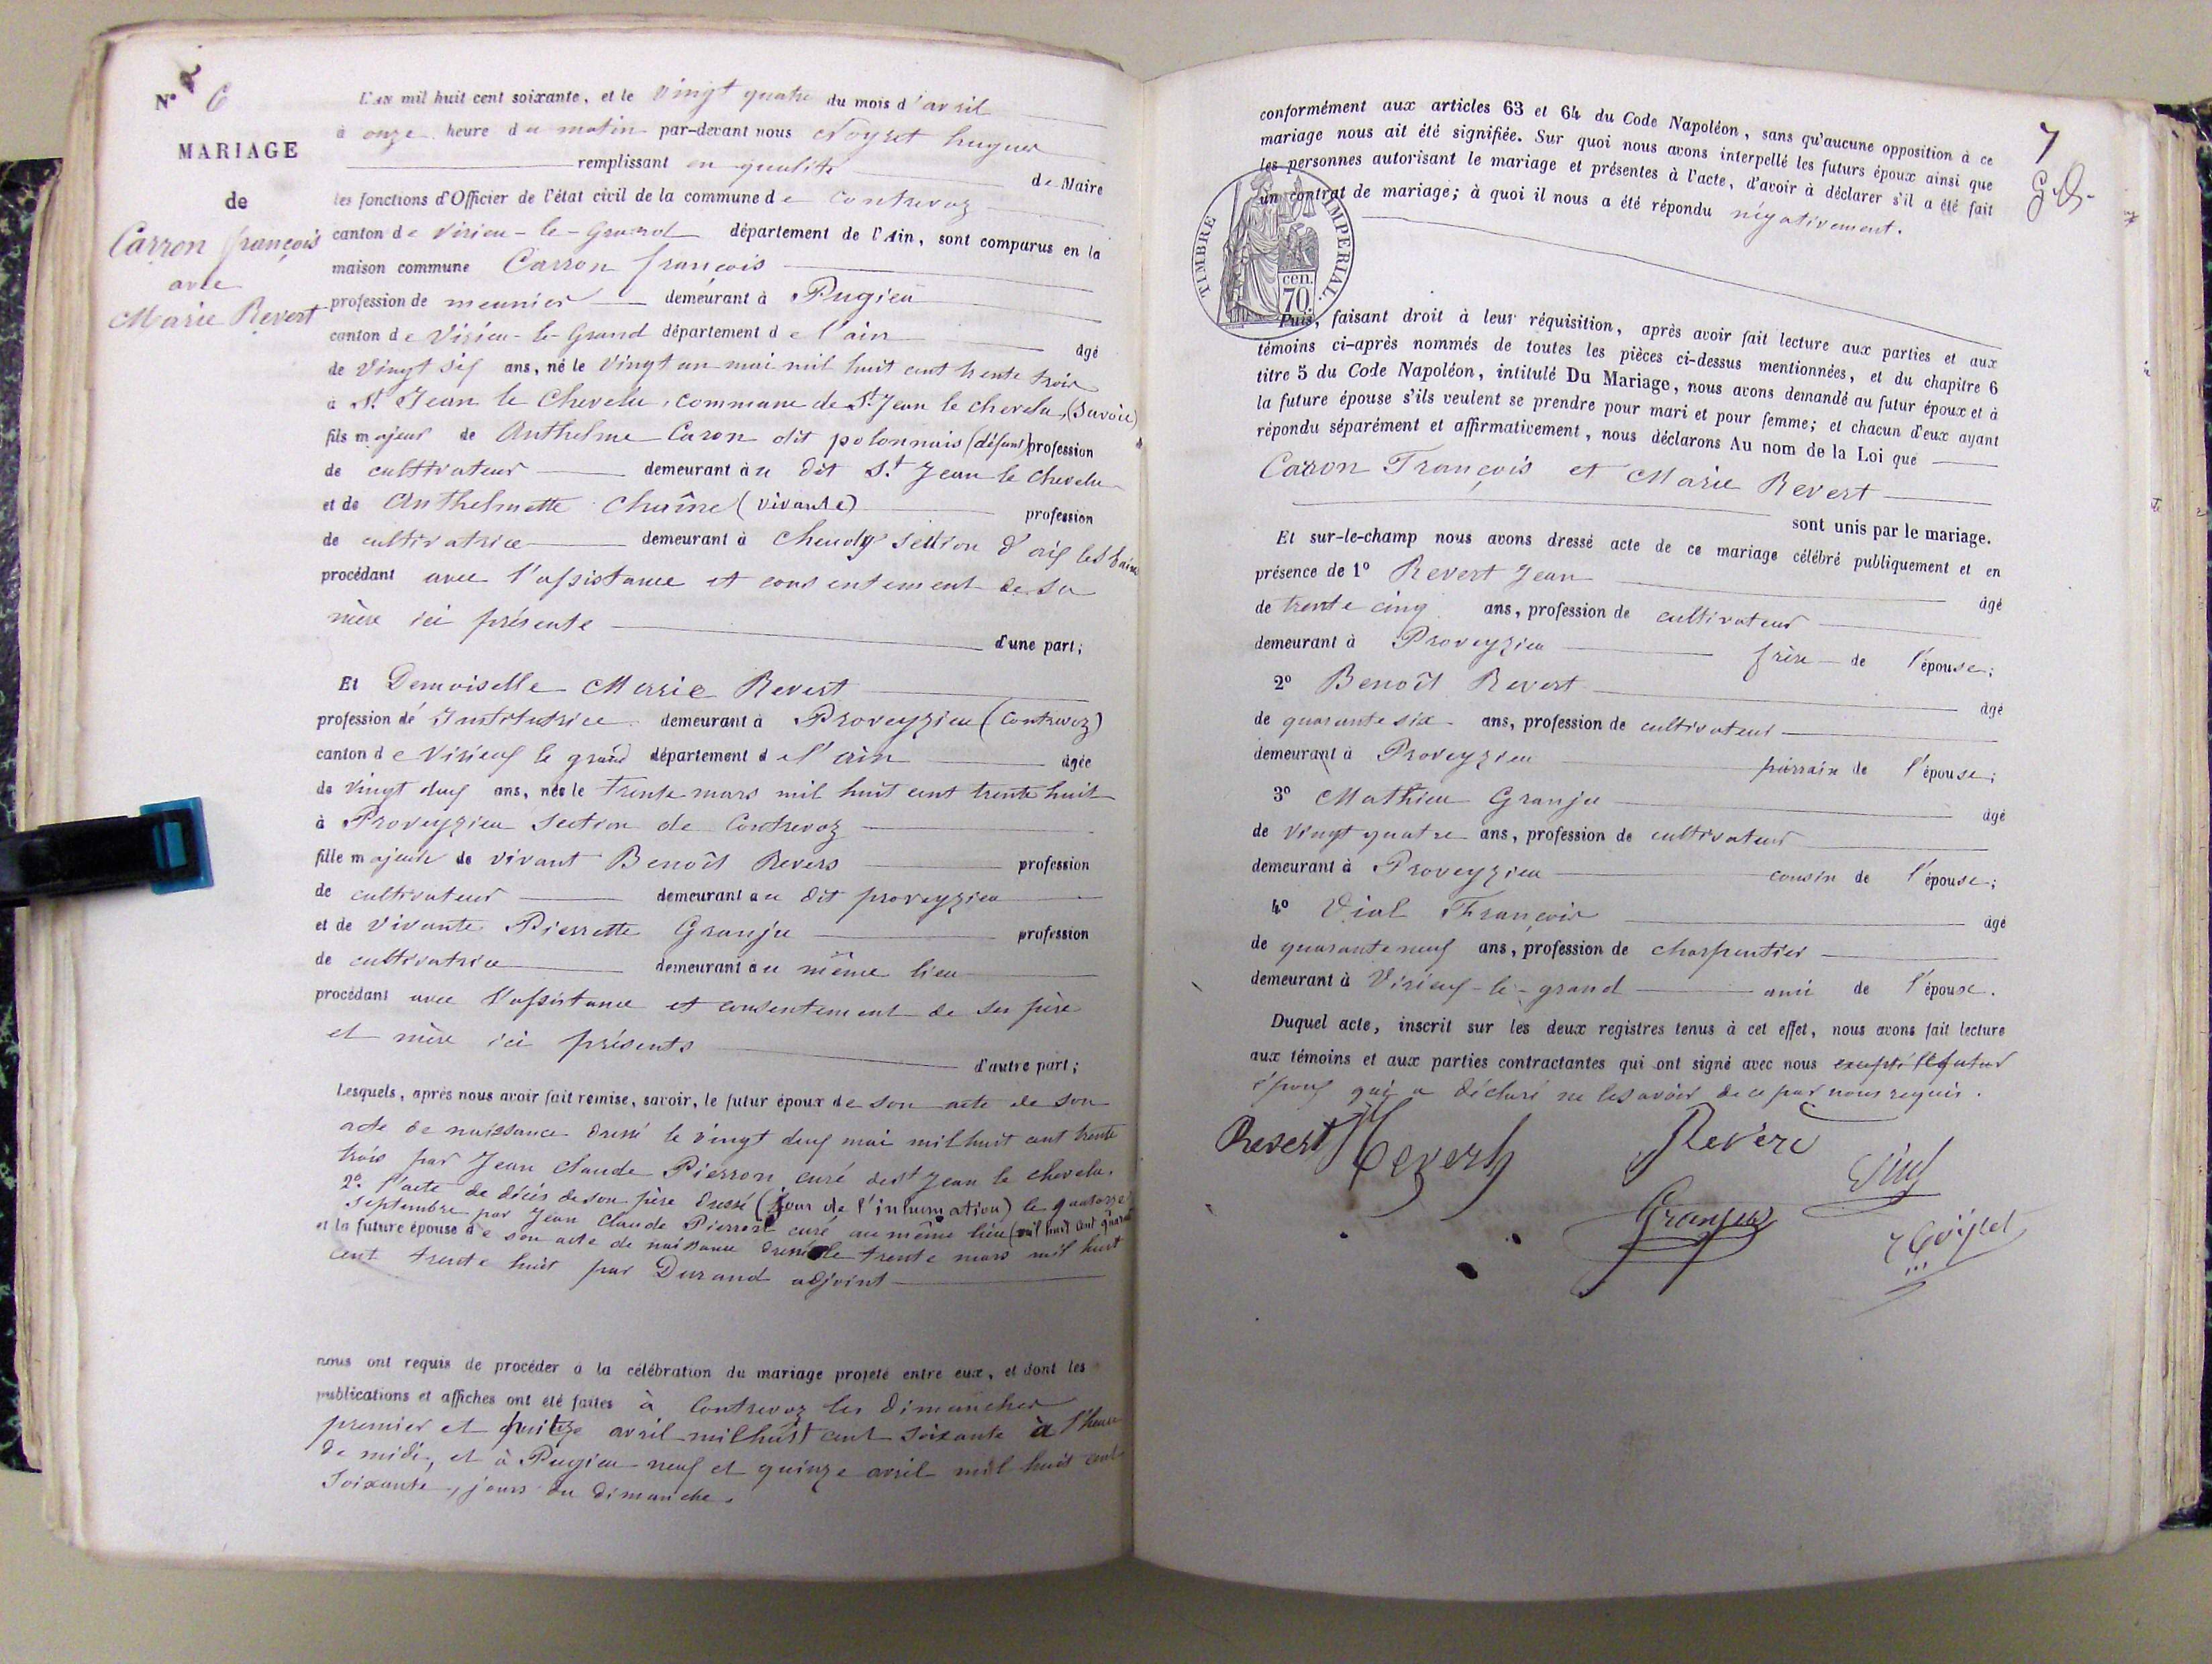 N° 6
MARIAGE
de
Carron françois
avec
Marie Revert
L'AN mil huit cent soixante, et le vingt quatre du mois d'avril
à onze heure du matin par-devant nous Noyret hugues
remplissant en qualité de Maire
les fonctions d'Officier de l'état civil de la commune de Contrevoz
canton de Virieu-le-Grand département de l'Ain, sont comparus en la
maison commune Carron françois
profession de meunier demeurant à Pugieu
canton de Virieu-le-Grand département de l'ain âgé
de vingt six ans, né le vingt un mai mil huit cent trente trois
à St. Jean le Chevelu, commune de St. Jean le chevelu, (Savoie)
fils majeur de Anthelme Caron dit polonnais (défunt) profession
de culttivateur demeurant au dit St. Jean le Chevelu
et de Anthelmette Chaîne (vivante) profession
de cultivatrice demeurant à section d'aix les bains
procédant avec l'assistance et consentement de sa
mère ici présente d'une part;
Et Demoiselle Marie Revert
profession de Institutrice demeurant à Proveyzieu (Contrevoz)
canton de Virieux le grand département de l'ain âgée
de vingt deux ans, née le trente mars mil huit cent trente huit
à Proveyzieu section de Contrevoz
fille majeure de vivant Benoît Revers profession
de cultivateur demeurant au dit proveyzieu
et de vivante Pierrette Granju profession
de cultivatrice demeurant au même lieu
procédant avec l'assistance et consentement de ses père
et mère ici présents d'autre part;
Lesquels, après nous avoir fait remise, savoir, le futur époux de son acte de son
acte de naissance dressé le vingt deux mai mil huit cent trente
trois par Jean Claude Pierron curé de St Jean le chevelu.
2°. l'acte de décès de son père dressé (jour de l'inhumation) le quatorze
septembre par Jean Claude Pierron curé au même lieu (mil huit cent
et la future épouse de son acte de naissance dressé le trente mars mil huit
cent trente huit par Durand adjoint
nous ont requis de procéder à la célébration du mariage projeté entre eux, et dont les
publications et affiches ont été faites à Contrevoz les dimanches
premier et avril mil huit cent soixante à l'heure
de midi, et à Pugieu neuf et quinze avril mil huit cent
soixante, jours du dimanche.
7
conformément aux articles 63 et 64 du Code Napoléon, sans qu'aucune opposition à ce
mariage nous ait été signifiée. Sur quoi nous avons interpellé les futurs époux ainsi que
les personnes autorisant le mariage et présentes à l'acte, d'avoir à déclarer s'il a été fait
un contrat de mariage; à quoi il nous a été répondu négativement.
TIMBRE IMPERIAL.
cen.
70
Puis, faisant droit à leur réquisition, après avoir fait lecture aux parties et aux
témoins ci-après nommés de toutes les pièces ci-dessus mentionnées, et du chapitre 6
titre 5 du Code Napoléon, intitulé Du Mariage, nous avons demandé au futur époux et à
la future épouse s'ils veulent se prendre pour mari et pour femme; et chacun d'eux ayant
répondu séparément et affirmativement, nous déclarons Au nom de la Loi que
Caron François et Marie Revert
sont unis par le mariage.
Et sur-le-champ nous avons dressé acte de ce mariage célébré publiquement et en
présence de 1° Revert Jean âgé
de trente cinq ans, profession de cultivateur
demeurant à Proveyzieu frère de l'épouse;
2° Benoît Revert âgé
de quarante six ans, profession de cultivateur
demeurant à Proveyzieu parrain de l'épouse;
3° Mathieu Granju âgé
de vingt quatre ans, profession de cultivateur
demeurant à Proveyzieu cousin de l'épouse;
4° Vial François âgé
de quarante neuf ans, profession de charpentier
demeurant à Virieux-le-grand ami de l'épouse.
Duquel acte, inscrit sur les deux registres tenus à cet effet, nous avons fait lecture
aux témoins et aux parties contractantes qui ont signé avec nous excepté le futur
époux qui a déclaré ne le savoir de ce par nous requis.
Revert Revert Revert
Granju